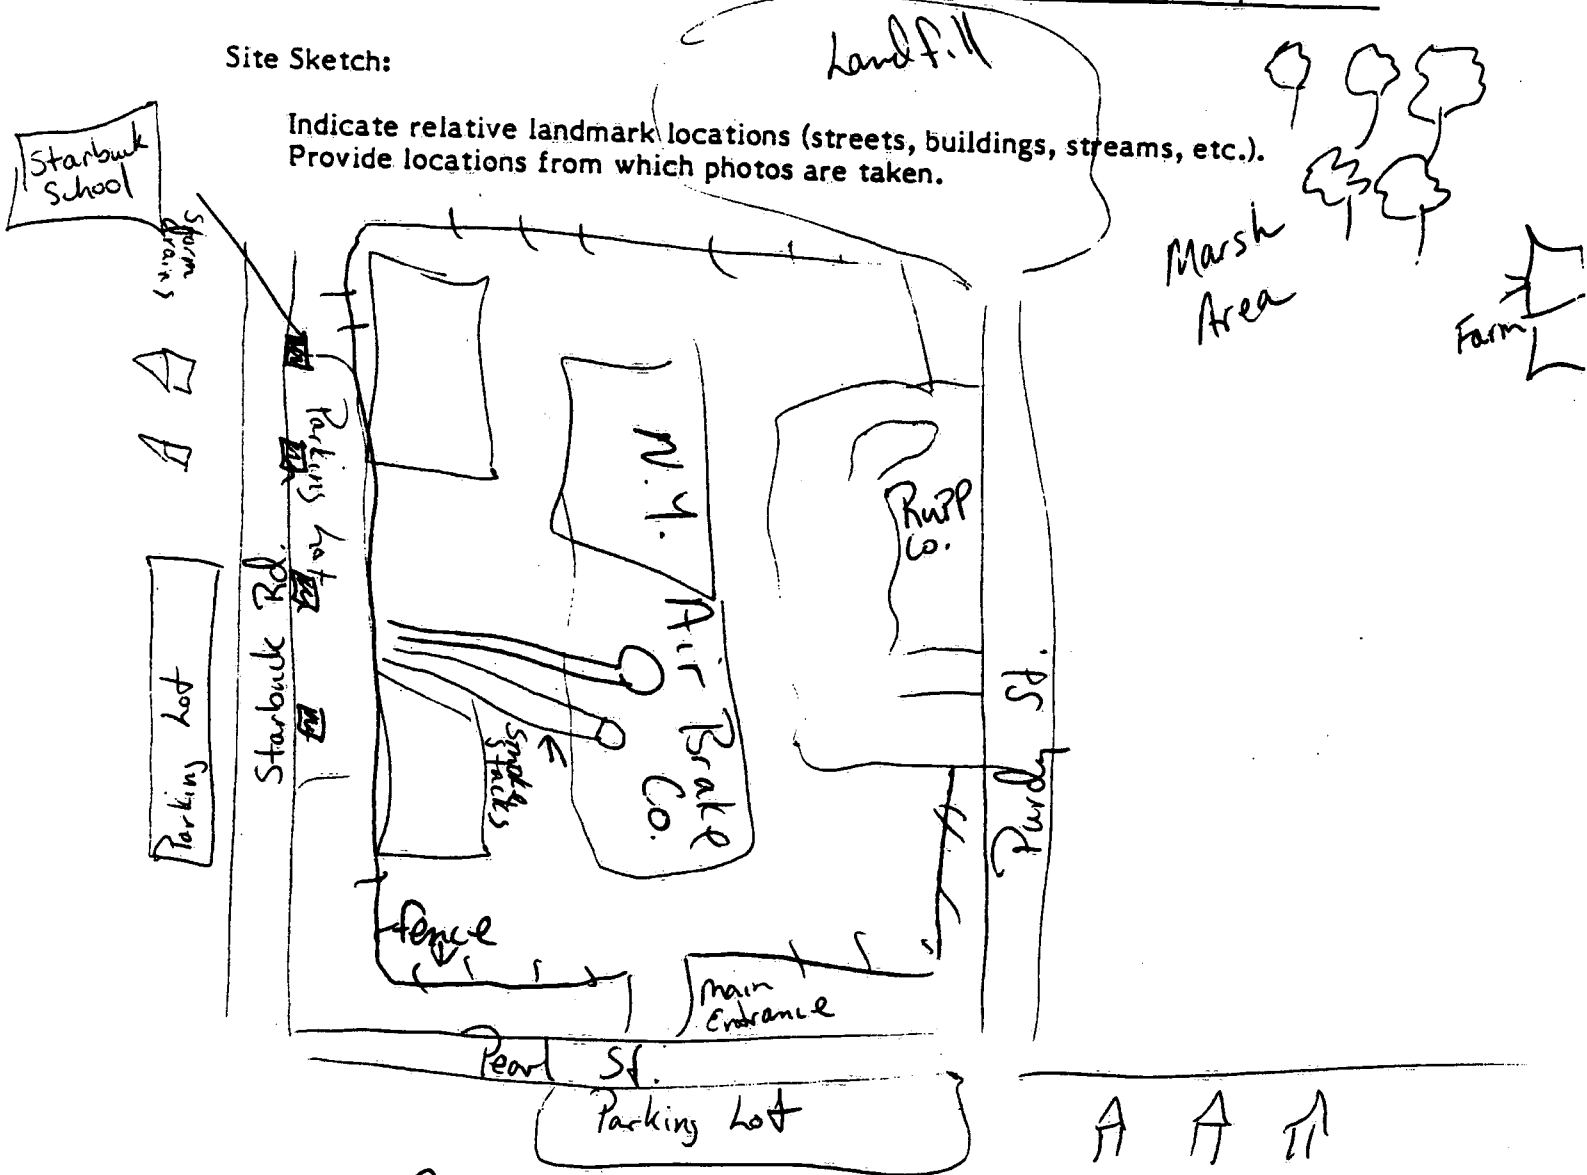 Landfill
Site Sketch:
Indicate relative landmark locations (streets, buildings, streams, etc.).
Provide locations from which photos are taken.
Starbuck
School
Storm
drains
Marsh
Area
Farm
Parking Lot
N.Y.
Air Brake
Co.
Rupp
Co.
Starbuck Rd.
Parking Lot
Smoke
Stacks
Purdy St.
fence
Main
Entrance
Pearl St.
Parking Lot